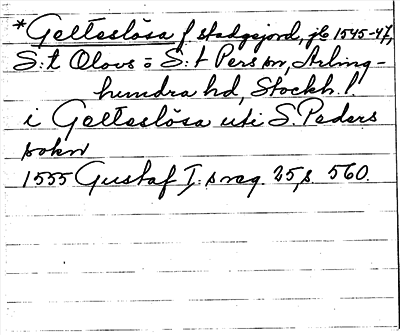 *Gelteslösa f stadgejord, jb 1545-47,
S:t Olovs o S:t Pers sn, Ärling-
hundra hd, Stockh. l.
i Gelteslösa uti S. Peders
sokn
1555 Gustaf I:s reg. 25, s. 560.